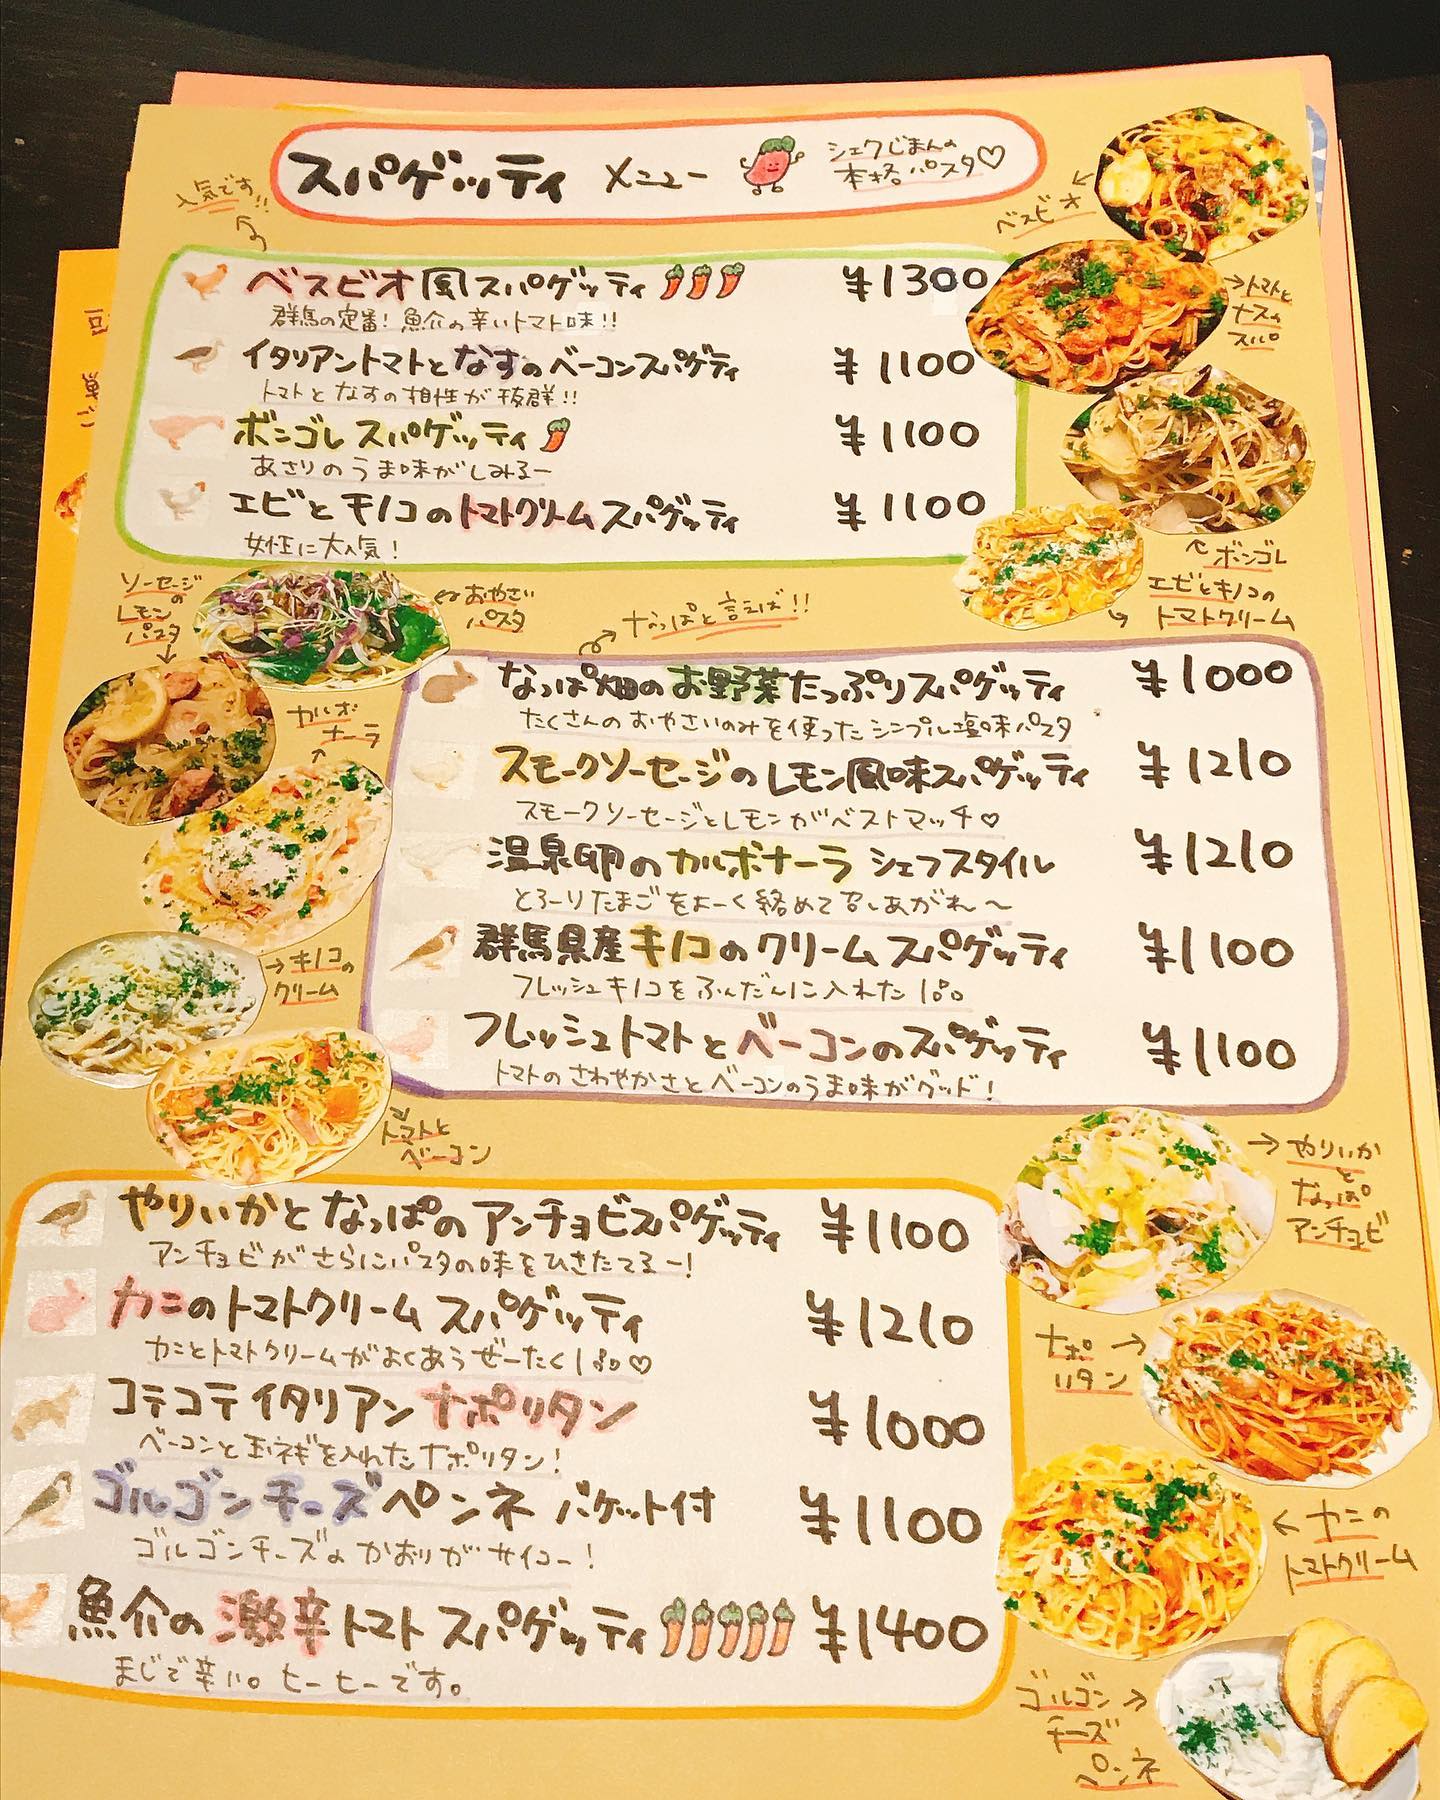 スパゲッティ メニュー
シェフじまんの
本格パスタ♡
人気です!!
ベスビオ
ベスビオ風スパゲッティ ¥1300
群馬の定番!魚介の辛いトマト味!!
イタリアントマトとなすのベーコンスパゲティ ¥1100
トマトとなすの相性が抜群!!
ボンゴレスパゲッティ ¥1100
あさりのうま味がしみるー
エビとキノコのトマトクリームスパゲッティ ¥1100
女性に大人気!
→トマトと
ナスの
スパ
ボンゴレ
エビとキノコの
トマトクリーム
ソーセージの
レモン
パスタ
おやさい
パスタ
カルボ
ナーラ
→キノコの
クリーム
トマトと
ベーコン
なっぱと言えば!!
なっぱ畑のお野菜たっぷりスパゲッティ ¥1000
たくさんのおやさいのみを使ったシンプル塩味パスタ
スモークソーセージのレモン風味スパゲッティ ¥1210
スモークソーセージとレモンがベストマッチ♡
温泉卵のカルボナーラ シェフスタイル ¥1210
とろーりたまごをよーく絡めて召しあがれ〜
群馬県産キノコのクリームスパゲッティ ¥1100
フレッシュキノコをふんだんに入れた1品。
フレッシュトマトとベーコンのスパゲッティ ¥1100
トマトのさわやかさとベーコンのうま味がグッド!
やりいかとなっぱのアンチョビスパゲッティ ¥1100
アンチョビがさらにパスタの味をひきたてるー!
カニのトマトクリームスパゲッティ ¥1210
カニとトマトクリームがよくあうぜーたく1品♡
コテコテイタリアンナポリタン ¥1000
ベーコンと玉ネギを入れたナポリタン!
ゴルゴンチーズペンネ バケット付 ¥1100
ゴルゴンチーズのかおりがサイコー!
魚介の激辛トマトスパゲッティ ¥1400
まじで辛い。ヒーヒーです。
→やりいか
と
なっぱ
アンチョビ
ナポ→
リタン
←カニの
トマトクリーム
ゴルゴン→
チーズ
ペンネ